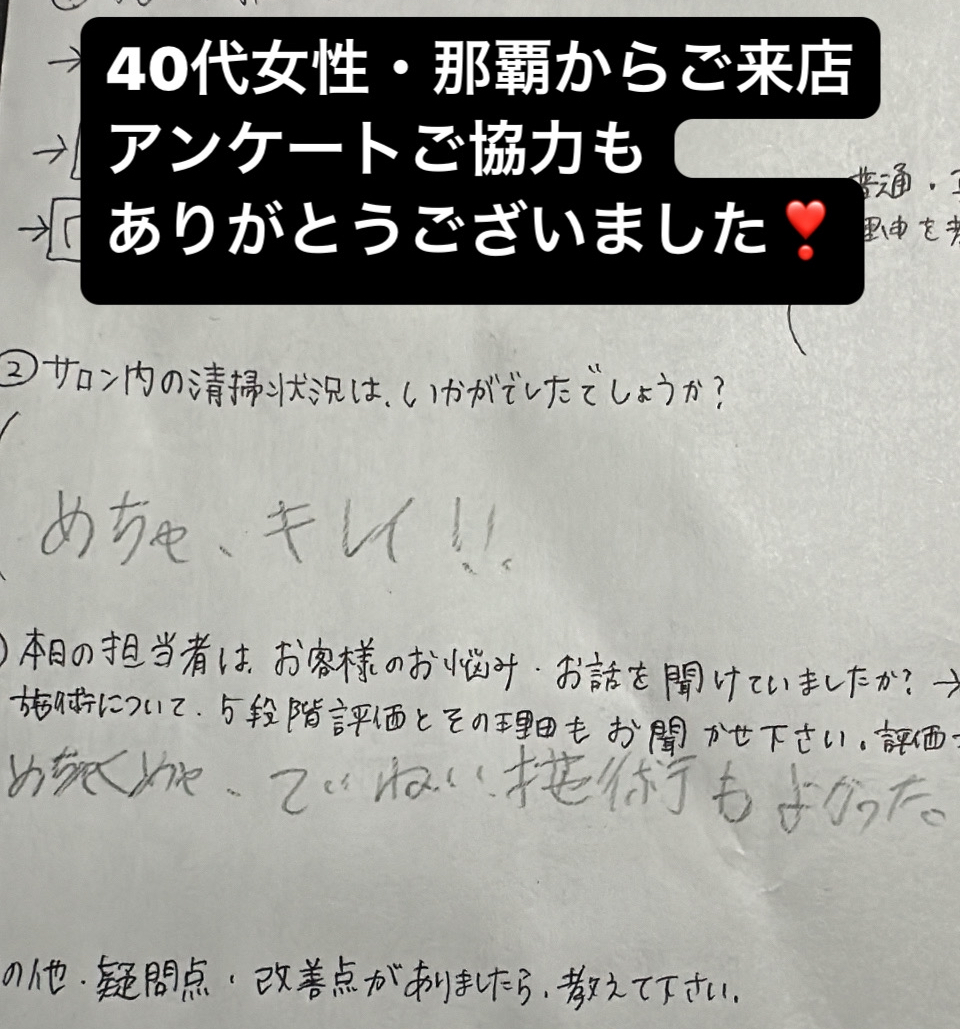 40代女性・那覇からご来店
アンケートご協力も
ありがとうございました❣️
普通・
理由を
②サロン内の清掃状況は、いかがでしたでしょうか?
めちゃ、キレイ!!
本日の担当者は、お客様のお悩み・お話を聞けていましたか?→
施術について、5段階評価とその理由もお聞かせ下さい。評価
めちゃくちゃ、ていねい、施術もよかった。
の他・疑問点・改善点がありましたら、教えて下さい。